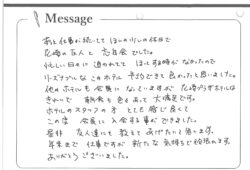 Message
あと仕事が続いてて ほんの少しの休日で
友人と 忘年会でした。
忙しい日々に 追われてて ほっとする時が なかったので
リーズナブルな このホテル 予約できて 良かったと思いました。
他のホテルも 会員に なっていますが 花崎プラザホテルは
きれいで 朝食も 色々あって 大満足です。
ホテルのスタッフの方 とても 感じ良くて
この度 会員に 入会する事ができました。
是非 友人達にも 教えて あげたいと思います。
年末まで 仕事ですが 新たな 気持ちで 頑張れます。
ありがとうございました。